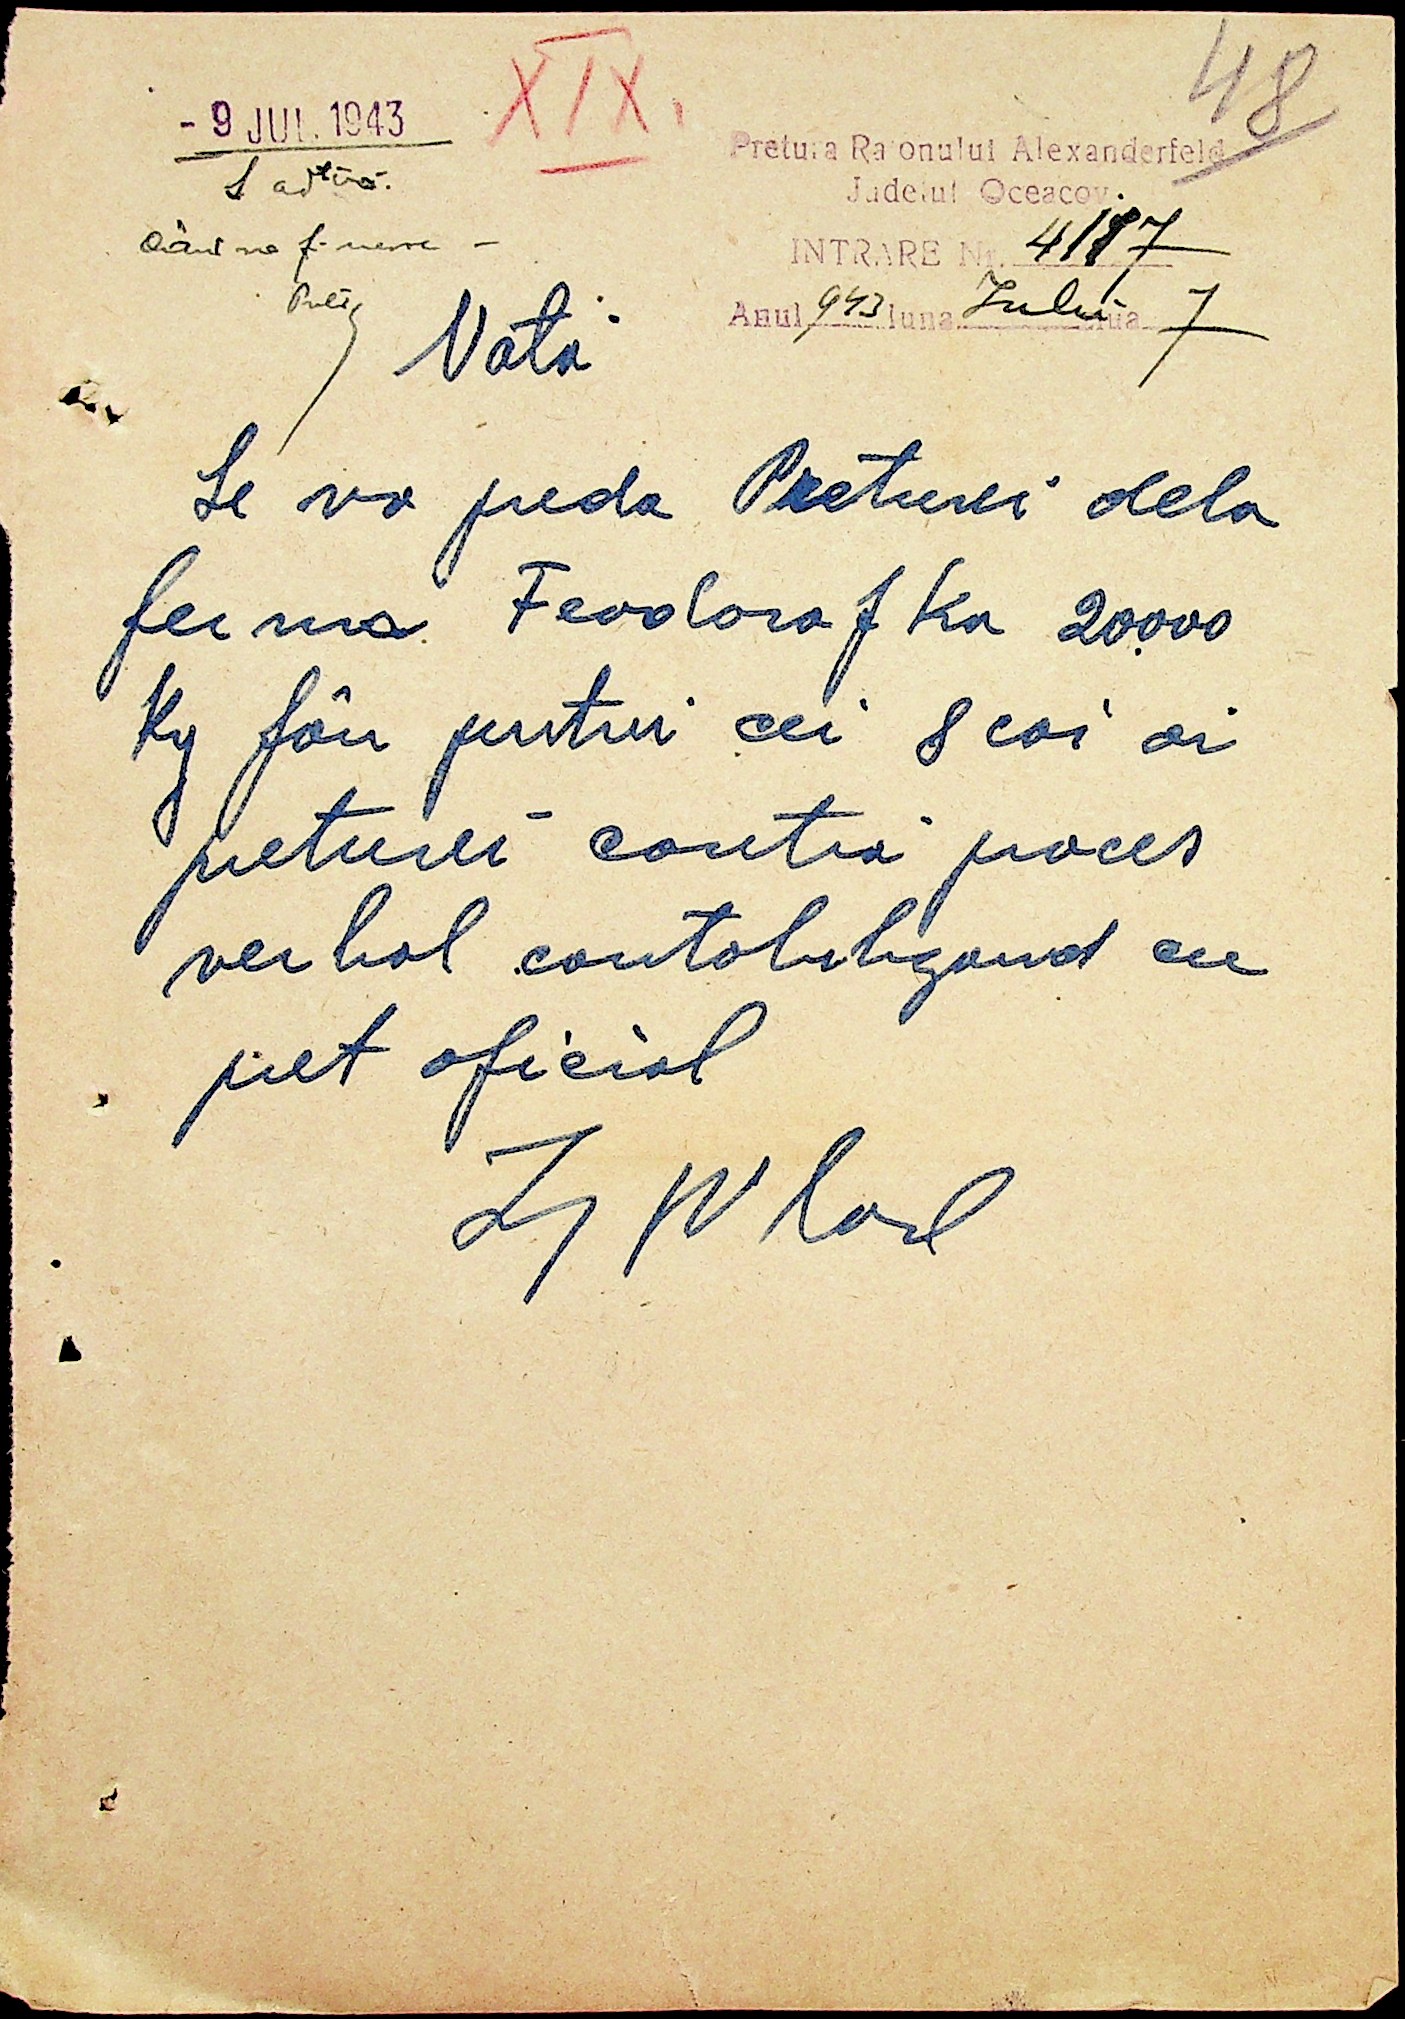 48
XIX.
- 9 JUL. 1943
Pretura Raionului Alexanderfeld
Judeţul Oceacov.
INTRARE Nr. 4187
Anul 943 luna Iulie ziua 7
Notă
Se va preda Preturei dela
ferma Feodorafka 20.000
Kg fân pentru cei 8 cai ai
preturei contra proces
verbal contabilizand cu
pret oficial